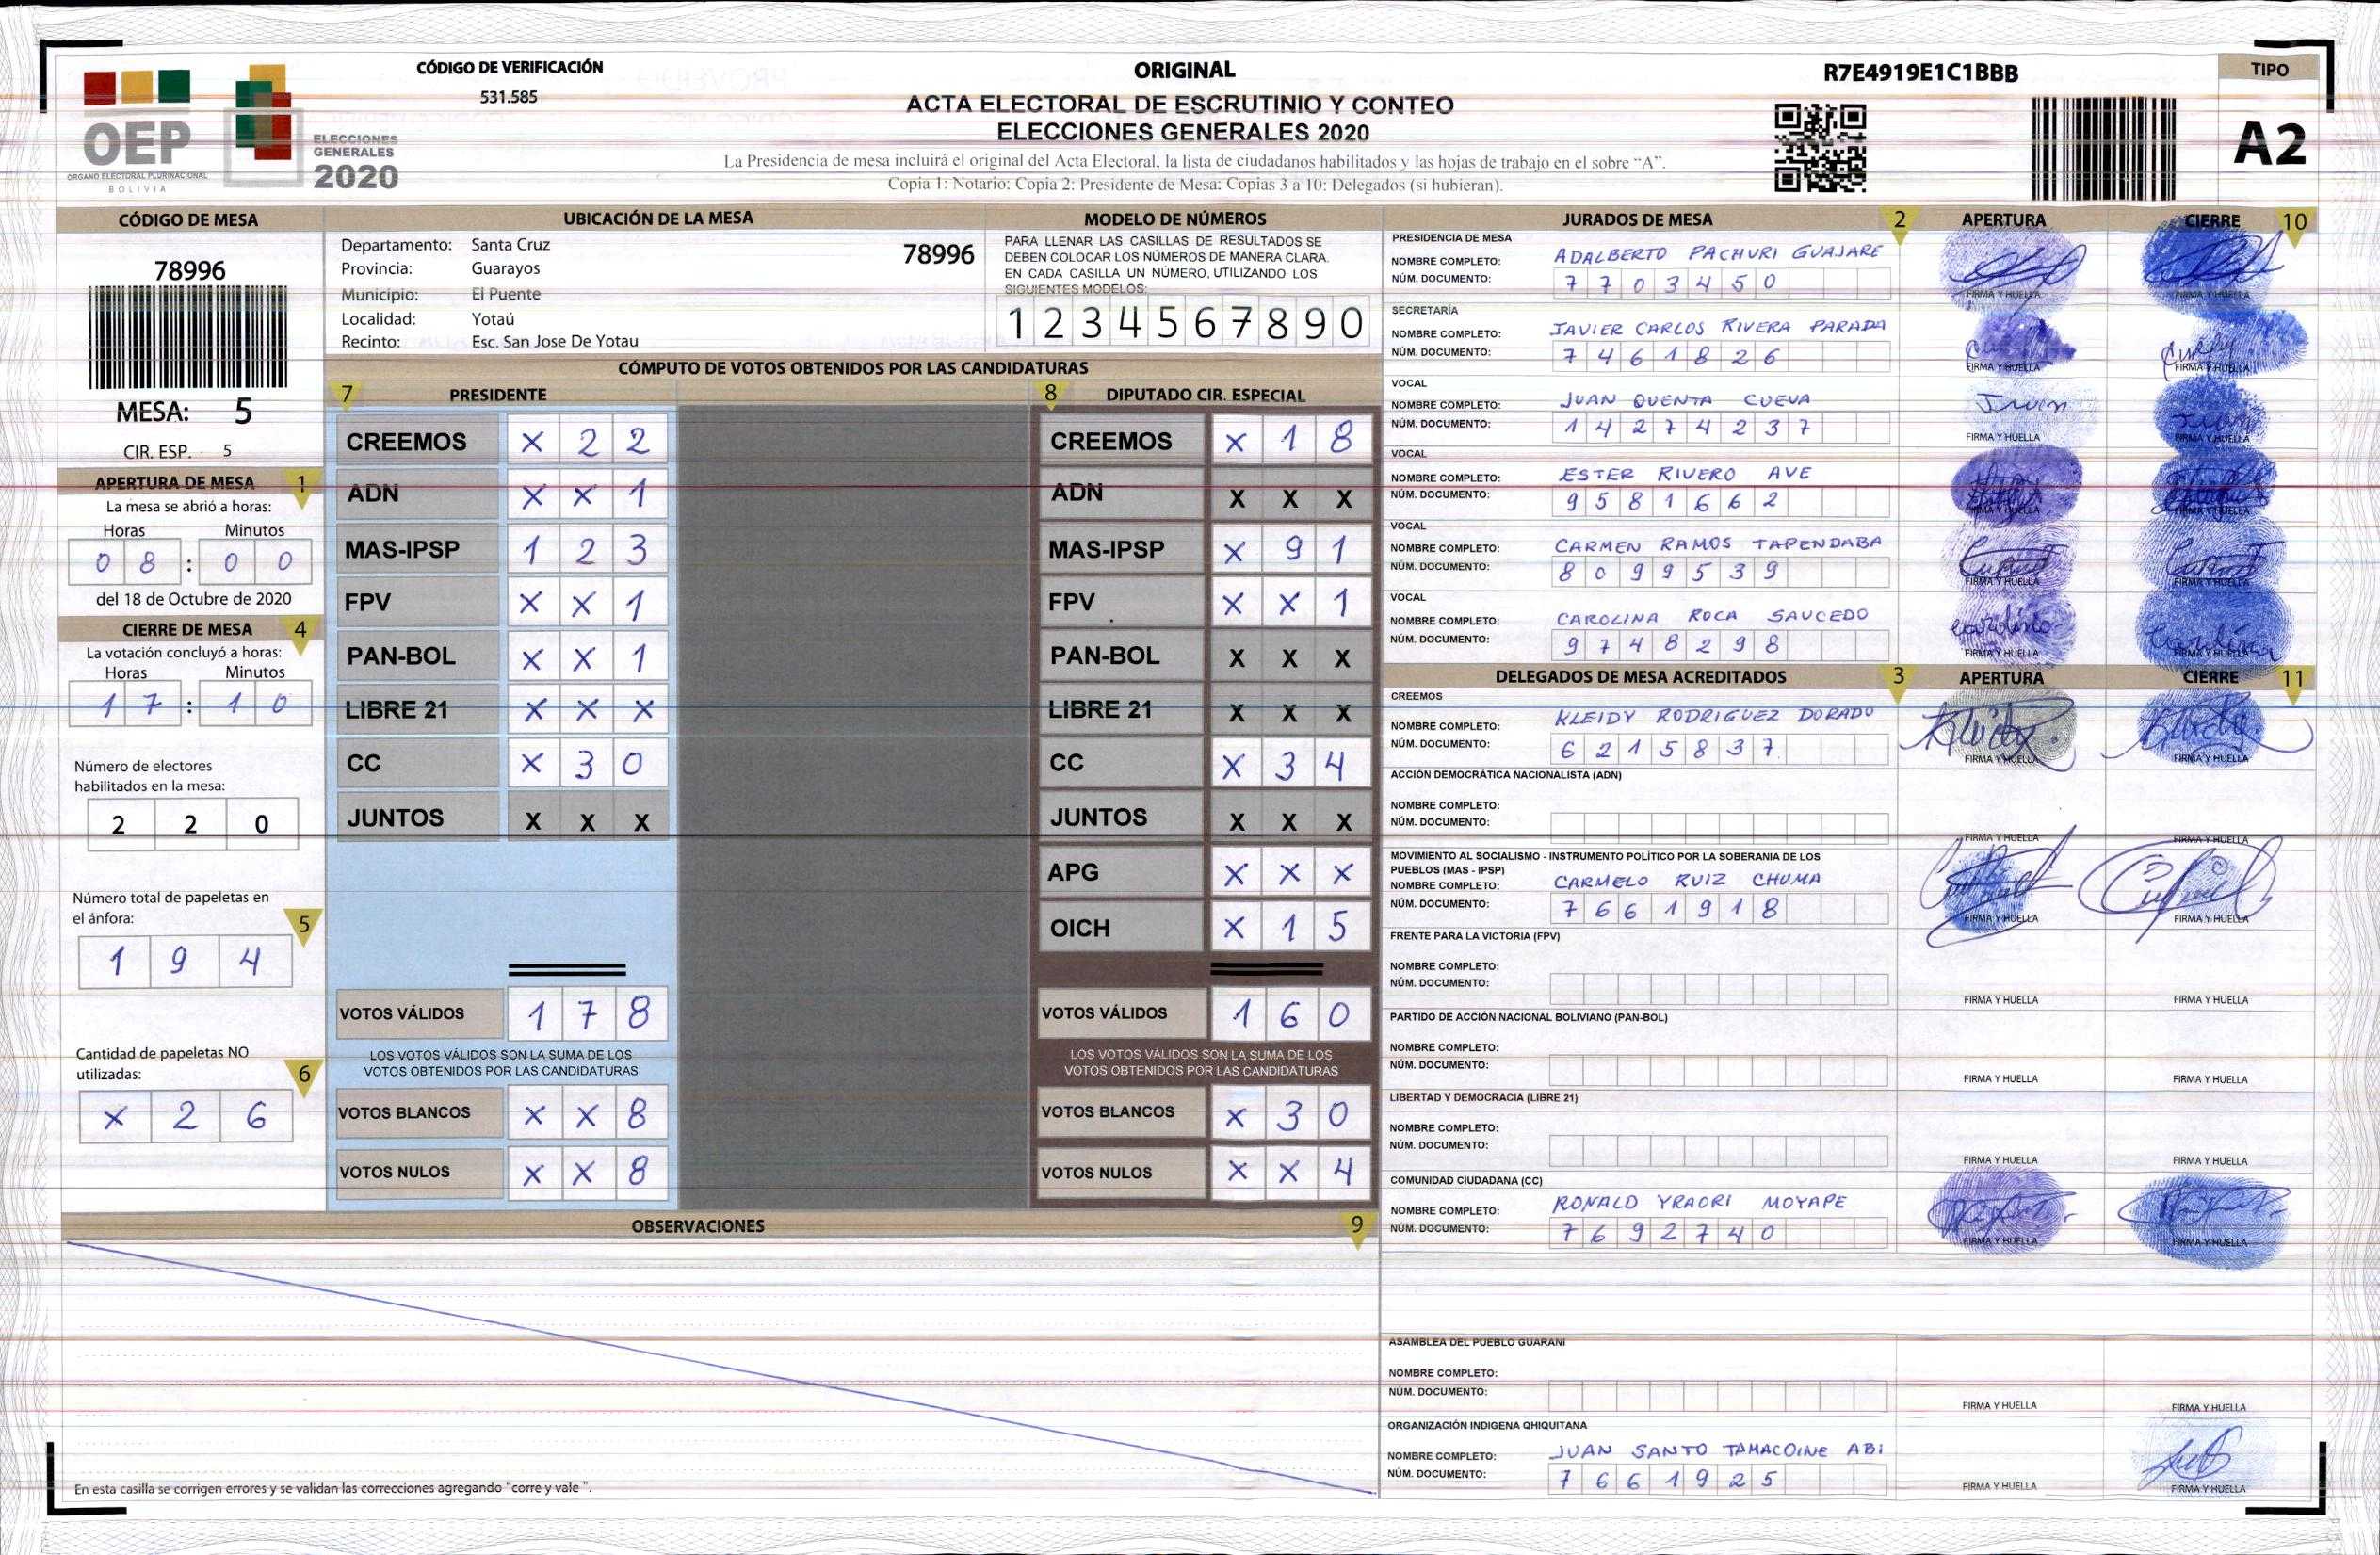 CÓDIGO DE VERIFICACIÓN
531.585
ORIGINAL
ACTA ELECTORAL DE ESCRUTINIO Y CONTEO
ELECCIONES GENERALES 2020
La Presidencia de mesa incluirá el original del Acta Electoral, la lista de ciudadanos habilitados y las hojas de trabajo en el sobre “A”.
Copia 1: Notario: Copia 2: Presidente de Mesa: Copias 3 a 10: Delegados (si hubieran).
R7E4919E1C1BBB
TIPO
A2
OEP
ORGANO ELECTORAL PLURINACIONAL
BOLIVIA
ELECCIONES
GENERALES
2020
CÓDIGO DE MESA
78996
MESA: 5
CIR. ESP. 5
APERTURA DE MESA 1
La mesa se abrió a horas:
Horas Minutos
0 8 : 0 0
del 18 de Octubre de 2020
CIERRE DE MESA 4
La votación concluyó a horas:
Horas Minutos
1 7 : 1 0
Número de electores
habilitados en la mesa:
2 2 0
Número total de papeletas en
el ánfora: 5
1 9 4
Cantidad de papeletas NO
utilizadas: 6
X 2 6
UBICACIÓN DE LA MESA
Departamento: Santa Cruz 78996
Provincia: Guarayos
Municipio: El Puente
Localidad: Yotaú
Recinto: Esc. San Jose De Yotau
MODELO DE NÚMEROS
PARA LLENAR LAS CASILLAS DE RESULTADOS SE
DEBEN COLOCAR LOS NÚMEROS DE MANERA CLARA.
EN CADA CASILLA UN NÚMERO, UTILIZANDO LOS
SIGUIENTES MODELOS:
1 2 3 4 5 6 7 8 9 0
CÓMPUTO DE VOTOS OBTENIDOS POR LAS CANDIDATURAS
7 PRESIDENTE
CREEMOS X 2 2
ADN X X 1
MAS-IPSP 1 2 3
FPV X X 1
PAN-BOL X X 1
LIBRE 21 X X X
CC X 3 0
JUNTOS X X X
VOTOS VÁLIDOS 1 7 8
LOS VOTOS VÁLIDOS SON LA SUMA DE LOS
VOTOS OBTENIDOS POR LAS CANDIDATURAS
VOTOS BLANCOS X X 8
VOTOS NULOS X X 8
8 DIPUTADO CIR. ESPECIAL
CREEMOS X 1 8
ADN X X X
MAS-IPSP X 9 1
FPV X X 1
PAN-BOL X X X
LIBRE 21 X X X
CC X 3 4
JUNTOS X X X
APG X X X
OICH X 1 5
VOTOS VÁLIDOS 1 6 0
LOS VOTOS VÁLIDOS SON LA SUMA DE LOS
VOTOS OBTENIDOS POR LAS CANDIDATURAS
VOTOS BLANCOS X 3 0
VOTOS NULOS X X 4
OBSERVACIONES 9
En esta casilla se corrigen errores y se validan las correcciones agregando "corre y vale ".
JURADOS DE MESA 2 APERTURA CIERRE 10
PRESIDENCIA DE MESA
NOMBRE COMPLETO: ADALBERTO PACHURI GUAJARE
NÚM. DOCUMENTO: 7 7 0 3 4 5 0
FIRMA Y HUELLA FIRMA Y HUELLA
SECRETARÍA
NOMBRE COMPLETO: JAVIER CARLOS RIVERA PARADA
NÚM. DOCUMENTO: 7 4 6 1 8 2 6
FIRMA Y HUELLA FIRMA Y HUELLA
VOCAL
NOMBRE COMPLETO: JUAN QUENTA CUEVA
NÚM. DOCUMENTO: 1 4 2 7 4 2 3 7
FIRMA Y HUELLA FIRMA Y HUELLA
VOCAL
NOMBRE COMPLETO: ESTER RIVERO AVE
NÚM. DOCUMENTO: 9 5 8 1 6 6 2
FIRMA Y HUELLA FIRMA Y HUELLA
VOCAL
NOMBRE COMPLETO: CARMEN RAMOS TAPENDABA
NÚM. DOCUMENTO: 8 0 9 9 5 3 9
FIRMA Y HUELLA FIRMA Y HUELLA
VOCAL
NOMBRE COMPLETO: CAROLINA ROCA SAUCEDO
NÚM. DOCUMENTO: 9 7 4 8 2 9 8
FIRMA Y HUELLA FIRMA Y HUELLA
DELEGADOS DE MESA ACREDITADOS 3 APERTURA CIERRE 11
CREEMOS
NOMBRE COMPLETO: KLEIDY RODRIGUEZ DORADO
NÚM. DOCUMENTO: 6 2 1 5 8 3 7
FIRMA Y HUELLA FIRMA Y HUELLA
ACCIÓN DEMOCRÁTICA NACIONALISTA (ADN)
NOMBRE COMPLETO:
NÚM. DOCUMENTO:
FIRMA Y HUELLA FIRMA Y HUELLA
MOVIMIENTO AL SOCIALISMO - INSTRUMENTO POLÍTICO POR LA SOBERANIA DE LOS
PUEBLOS (MAS - IPSP)
NOMBRE COMPLETO: CARMELO RUIZ CHUMA
NÚM. DOCUMENTO: 7 6 6 1 9 1 8
FIRMA Y HUELLA FIRMA Y HUELLA
FRENTE PARA LA VICTORIA (FPV)
NOMBRE COMPLETO:
NÚM. DOCUMENTO:
FIRMA Y HUELLA FIRMA Y HUELLA
PARTIDO DE ACCIÓN NACIONAL BOLIVIANO (PAN-BOL)
NOMBRE COMPLETO:
NÚM. DOCUMENTO:
FIRMA Y HUELLA FIRMA Y HUELLA
LIBERTAD Y DEMOCRACIA (LIBRE 21)
NOMBRE COMPLETO:
NÚM. DOCUMENTO:
FIRMA Y HUELLA FIRMA Y HUELLA
COMUNIDAD CIUDADANA (CC)
NOMBRE COMPLETO: RONALD YRAORI MOYAPE
NÚM. DOCUMENTO: 7 6 9 2 7 4 0
FIRMA Y HUELLA FIRMA Y HUELLA
ASAMBLEA DEL PUEBLO GUARANI
NOMBRE COMPLETO:
NÚM. DOCUMENTO:
FIRMA Y HUELLA FIRMA Y HUELLA
ORGANIZACIÓN INDIGENA QHIQUITANA
NOMBRE COMPLETO: JUAN SANTO TAMACOINE ABI
NÚM. DOCUMENTO: 7 6 6 1 9 2 5
FIRMA Y HUELLA FIRMA Y HUELLA